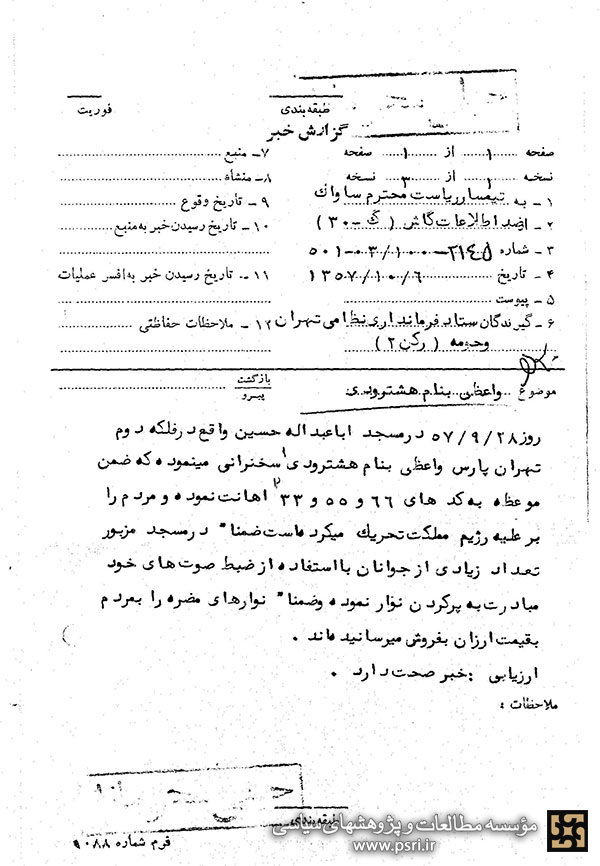 طبقه‌بندی
فوریت
گزارش خبر
صفحه ۱ از ۱ صفحه
۷ـ منبع
نسخه ۲ از ۳ نسخه
۸ـ منشاء
۱ـ به تیمسار ریاست محترم ساواک
۹ـ تاریخ وقوع
۲ـ از ضد اطلاعات گاش (ک-۳۰)
۱۰ـ تاریخ رسیدن خبر به منبع
۳ـ شماره ۵۰۱-۰۳/۱۰۰-۲۱۴۵
۴ـ تاریخ ۱۳۵۷/۱۰/۶
۱۱ـ تاریخ رسیدن خبر به افسر عملیات
۵ـ پیوست
۶ـ گیرندگان ستاد فرمانداری نظامی تهران
۱۲ـ ملاحظات حفاظتی
وحومه (رکن ۲)
بازگشت
پیرو
موضوع واعظی بنام هشترودی
روز ۵۷/۹/۲۸ در مسجد اباعبداله حسین واقع در فلکه دوم
تهران پارس واعظی بنام هشترودی سخنرانی مینموده که ضمن
موعظه به کد های ۶۶ و ۵۵ و ۳۳ اهانت نموده و مردم را
بر علیه رژیم مملکت تحریک میکرده‌است ضمنا" در مسجد مزبور
تعداد زیادی از جوانان با استفاده از ضبط صوت های خود
مبادرت به پرکردن نوار نموده وضمنا" نوارهای مضره را بمردم
بقیمت ارزان بفروش میرسانیده‌اند .
ارزیابی : خبر صحت دارد .
ملاحظات :
طبقه‌بندی
فرم شماره ۹۰۸۸
مؤسسه مطالعات و پژوهشهای سیاسی
www.psri.ir